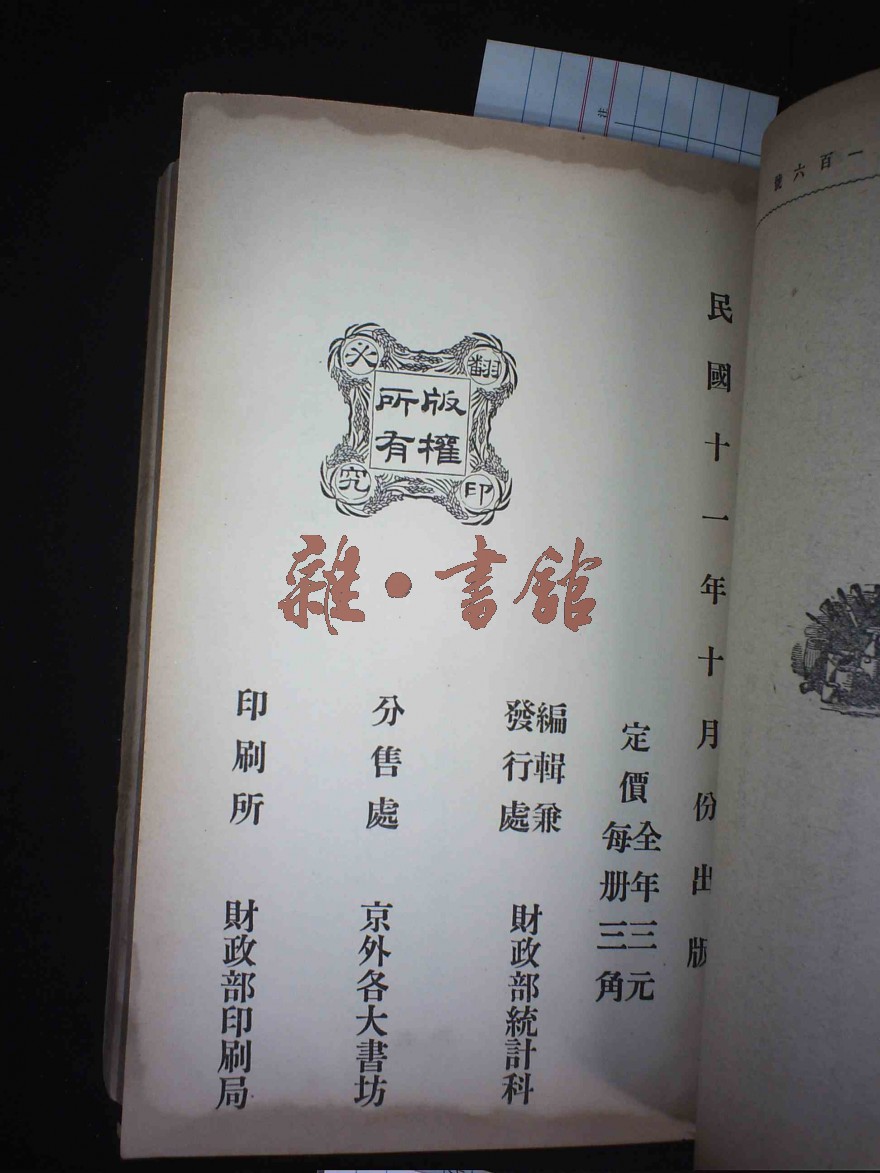 一百六號
民國十一年十月份出版
定價 全年三元
每册三角
編輯兼
發行處 財政部統計科
分售處 京外各大書坊
印刷所 財政部印刷局
版權
所有
翻印
必究
雜·書舘